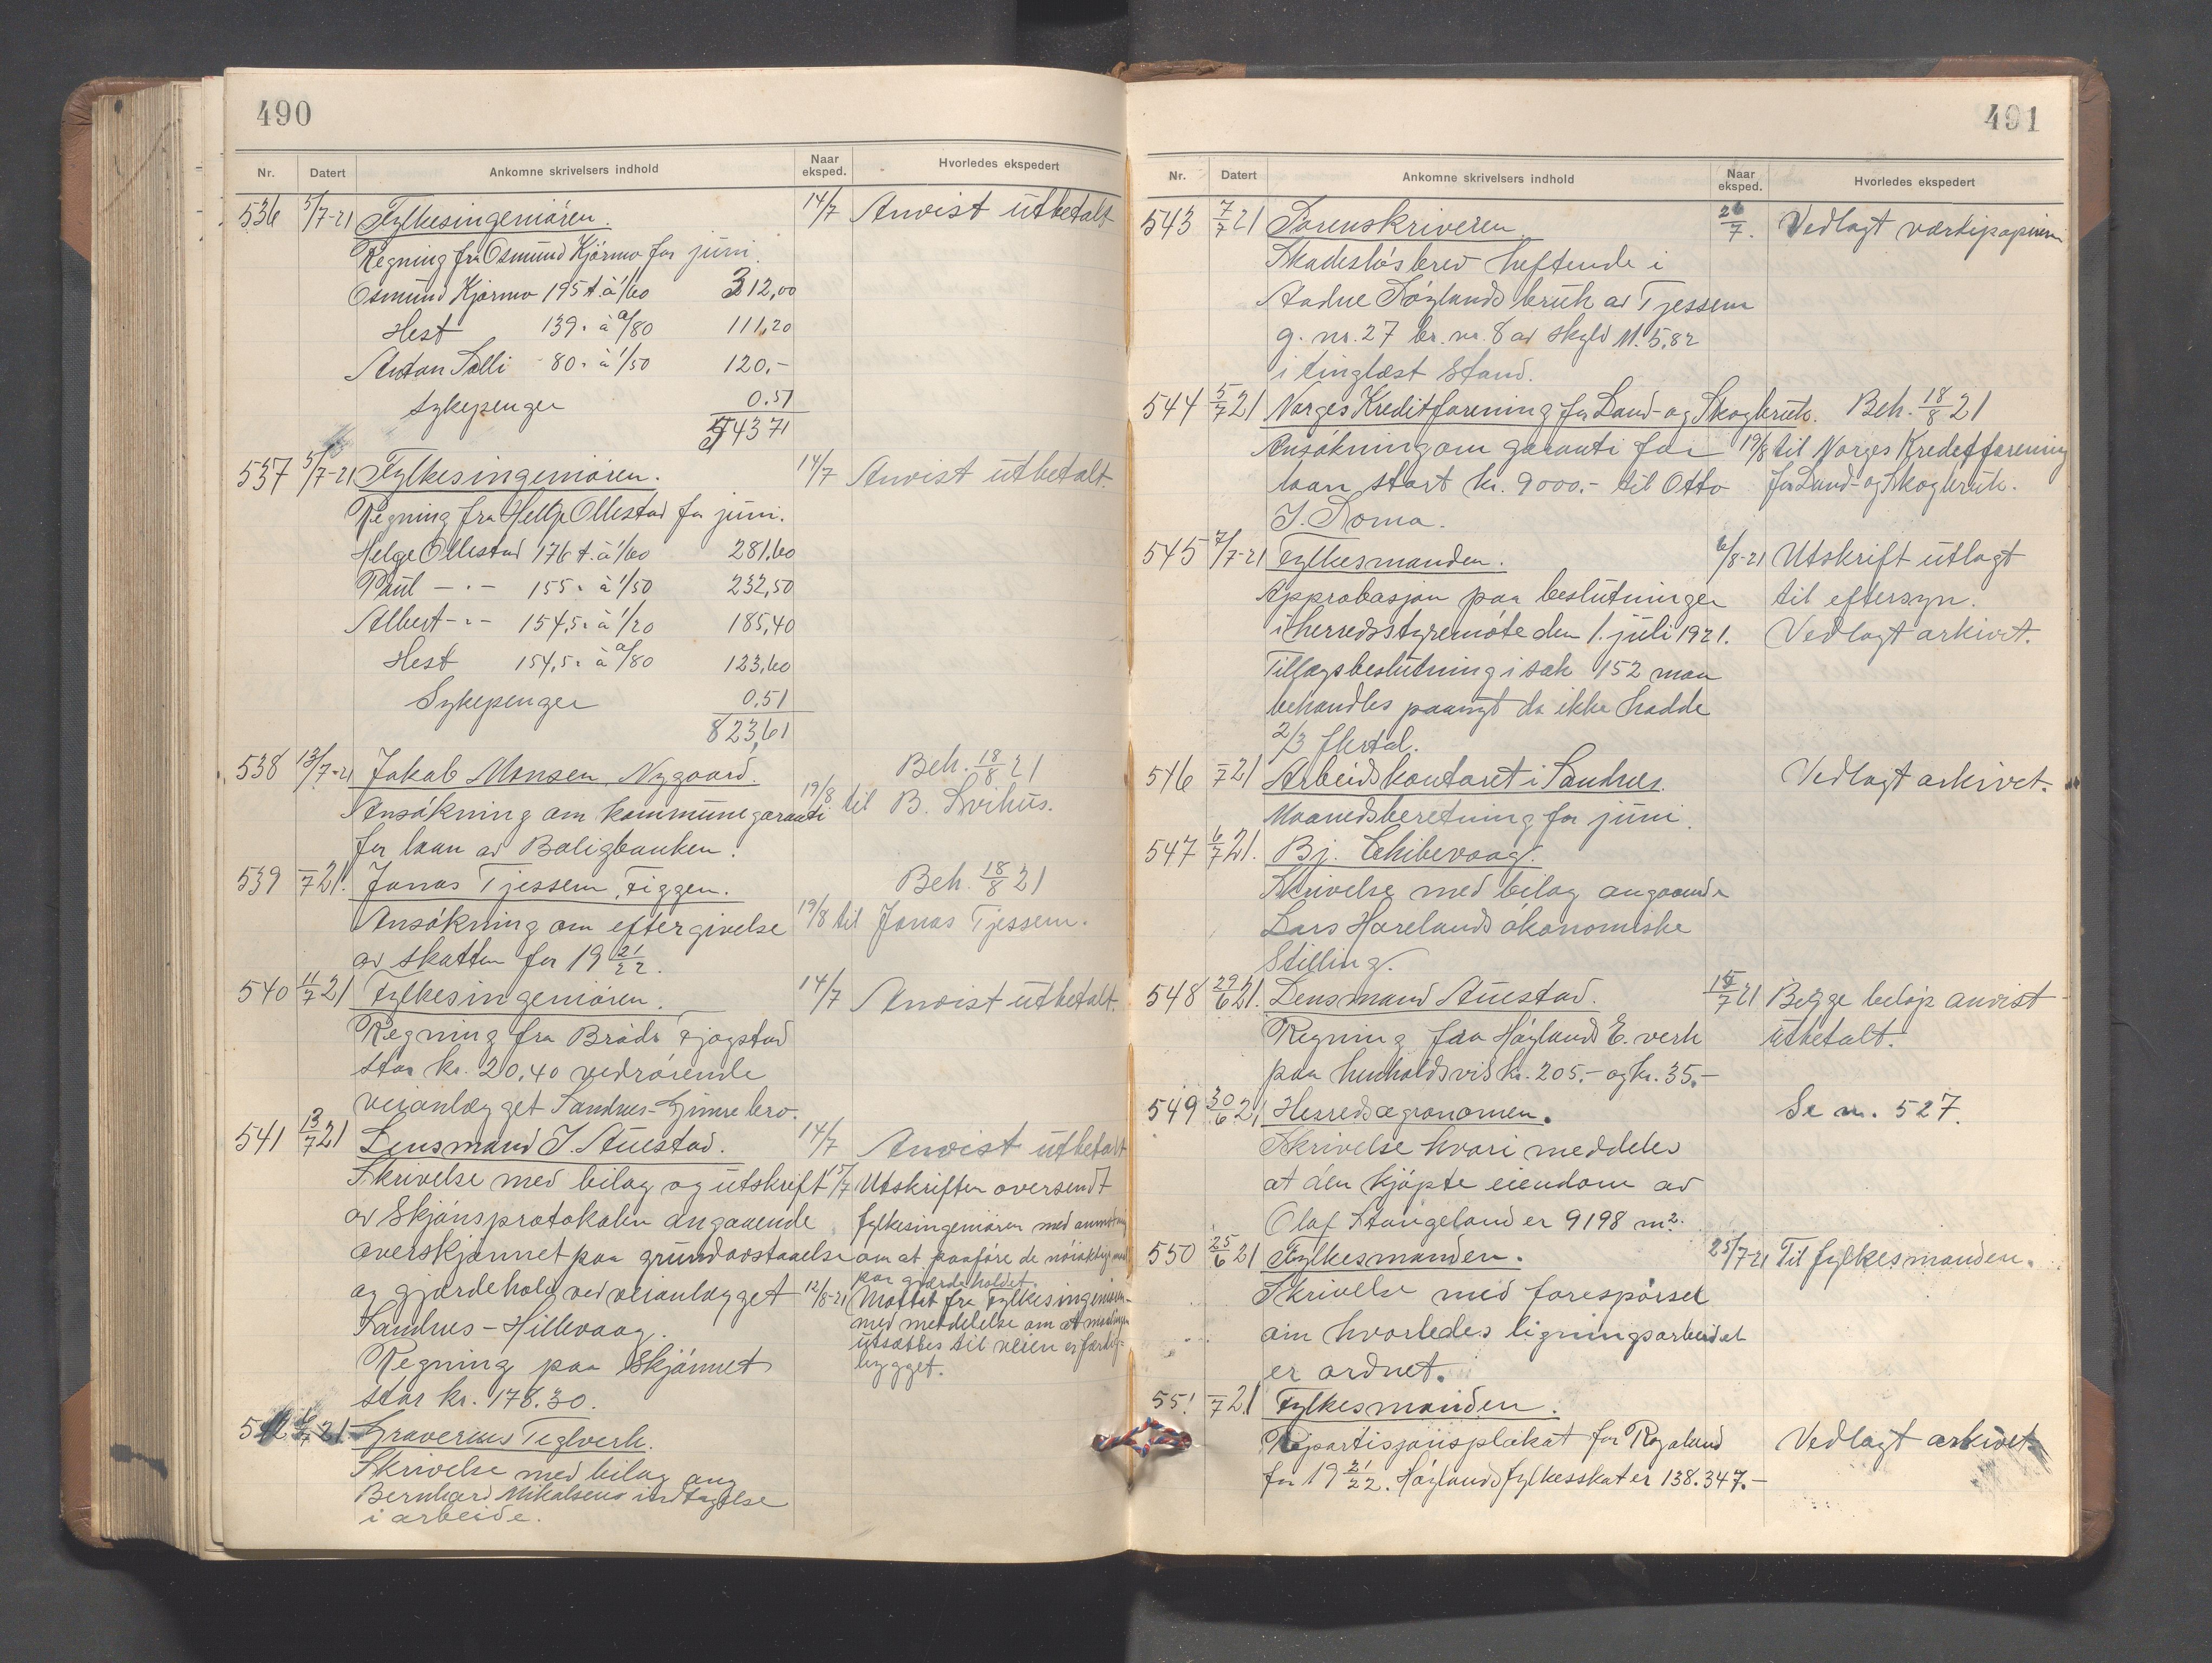 490
Nr. Datert Ankomne skrivelsers indhold Naar eksped. Hvorledes ekspedert
536 5/7-21 Fylkesingeniören. 14/7 Anvist utbetalt
Regning fra Osmund Kjörmo for juni.
Osmund Kjörmo 195 t. à 1/60 312,00
Hest 139 " à 0/80 111,20
Anton Salli 80 " à 1/50 120,-
Sykepenger 0.51
543 71
537 5/7-21 Fylkesingeniören. 14/7 Anvist utbetalt.
Regning fra Helge Ollestad for juni.
Helge Ollestad 176 t. à 1/60 281,60
Paul - " - 155 " à 1/50 232,50
Albert - " - 154,5 " à 1/20 185,40
Hest 154,5 " à 0/80 123,60
Sykepenger 0,51
823,61
538 13/7-21 Jakob Monsen, Nygaard. Beh. 18/8 21
Ansökning om kommunegaranti 19/8 til B. Svihus.
for laan av Boligbanken.
539 /7 21. Jonas Tjessem, Figgen. Beh. 18/8 21
Ansökning om eftergivelse 19/8 til Jonas Tjessem.
av skatten for 19 21/22.
540 11/7 21 Fylkesingeniören. 14/7 Anvist utbetalt.
Regning fra Brödr. Fjogstad
stor kr. 20,40 vedrörende
veianlægget Sandnes-Gimre bro.
541 13/7 21 Lensmand J. Auestad. 14/7 Anvist utbetalt
Skrivelse med bilag og utskrift 15/7 Utskriften oversendt
av Skjönsprotokolen angaaende fylkesingeniören med anmodning
overskjönnet paa grundavstaaelse om at paaföre de nöiaktige maal
paa gjærdeholdet.
og gjærdehold ved veianlægget 12/8-21 Mottat fra Fylkesingeniören
Sandnes - Hillevaag. med meddelelse om at maalingen
utsættes til veien er færdig-
Regning paa Skjönnet bygget.
stor kr. 178.30.
542 6/7 21 Graverens Teglverk.
Skrivelse med bilag ang
Bernhard Mikalsens indtagelse
i arbeide.
491
Nr. Datert Ankomne skrivelsers indhold Naar eksped. Hvorledes ekspedert
543 7/7 21 Sorenskriveren. 26/7. Vedlagt værdipapirer
Skadeslösbrev heftende i
Aadne Höylands bruk av Tjessem
g. nr. 27 br. nr. 8 av skyld M. 5,82
i tinglæst stand.
544 5/7 21 Norges Kreditforening for Land- og Skogbruk. Beh. 18/8 21
Ansökning om garanti for 19/8 til Norges Kreditforening
laan stort kr. 9000.- til Otto for Land- og Skogbruk.
J. Soma.
545 7/7-21 Fylkesmanden. 6/8-21 Utskrift utlagt
Approbasjon paa beslutninger til eftersyn.
i herredsstyremöte den 1. juli 1921. Vedlagt arkivet.
Tillægsbeslutning i sak 152 maa
behandles paanyt da ikke hadde
2/3 flertal.
546 /7 21 Arbeidskontoret i Sandnes. Vedlagt arkivet.
Maanedsberetning for juni.
547 6/7 21. Bj. Skibevaag.
Skrivelse med bilag angaaende
Lars Hærelands ökonomiske
Stilling.
548 29/6 21. Lensmand Auestad. 15/7 21 Begge belöp anvist
Regning fra Höylands E. verk utbetalt.
paa henholdsvis kr. 205.- og kr. 35.-
549 30/6 21 Herredsagronomen. Se nr. 527.
Skrivelse hvori meddeles
at den kjöpte eiendom av
Olaf Stangeland er 9198 m².
550 25/6 21 Fylkesmanden. 25/7-21 Til fylkesmanden.
Skrivelse med forespörsel
om hvorledes ligningsarbeidet
er ordnet.
551 /7 21 Fylkesmanden.
Repartisjonsplakat for Rogaland Vedlagt arkivet.
for 19 21/22. Höylands fylkesskat er 138.347.-